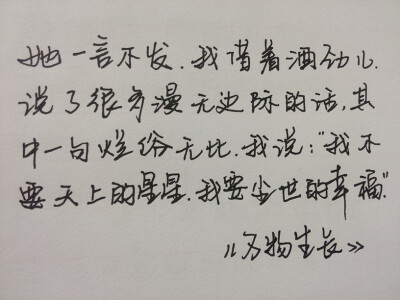 她一言不发.我借着酒劲儿.
说了很多漫无边际的话,其
中一句烂俗无比.我说:"我不
要天上的星星.我要尘世的幸福."
《万物生长》